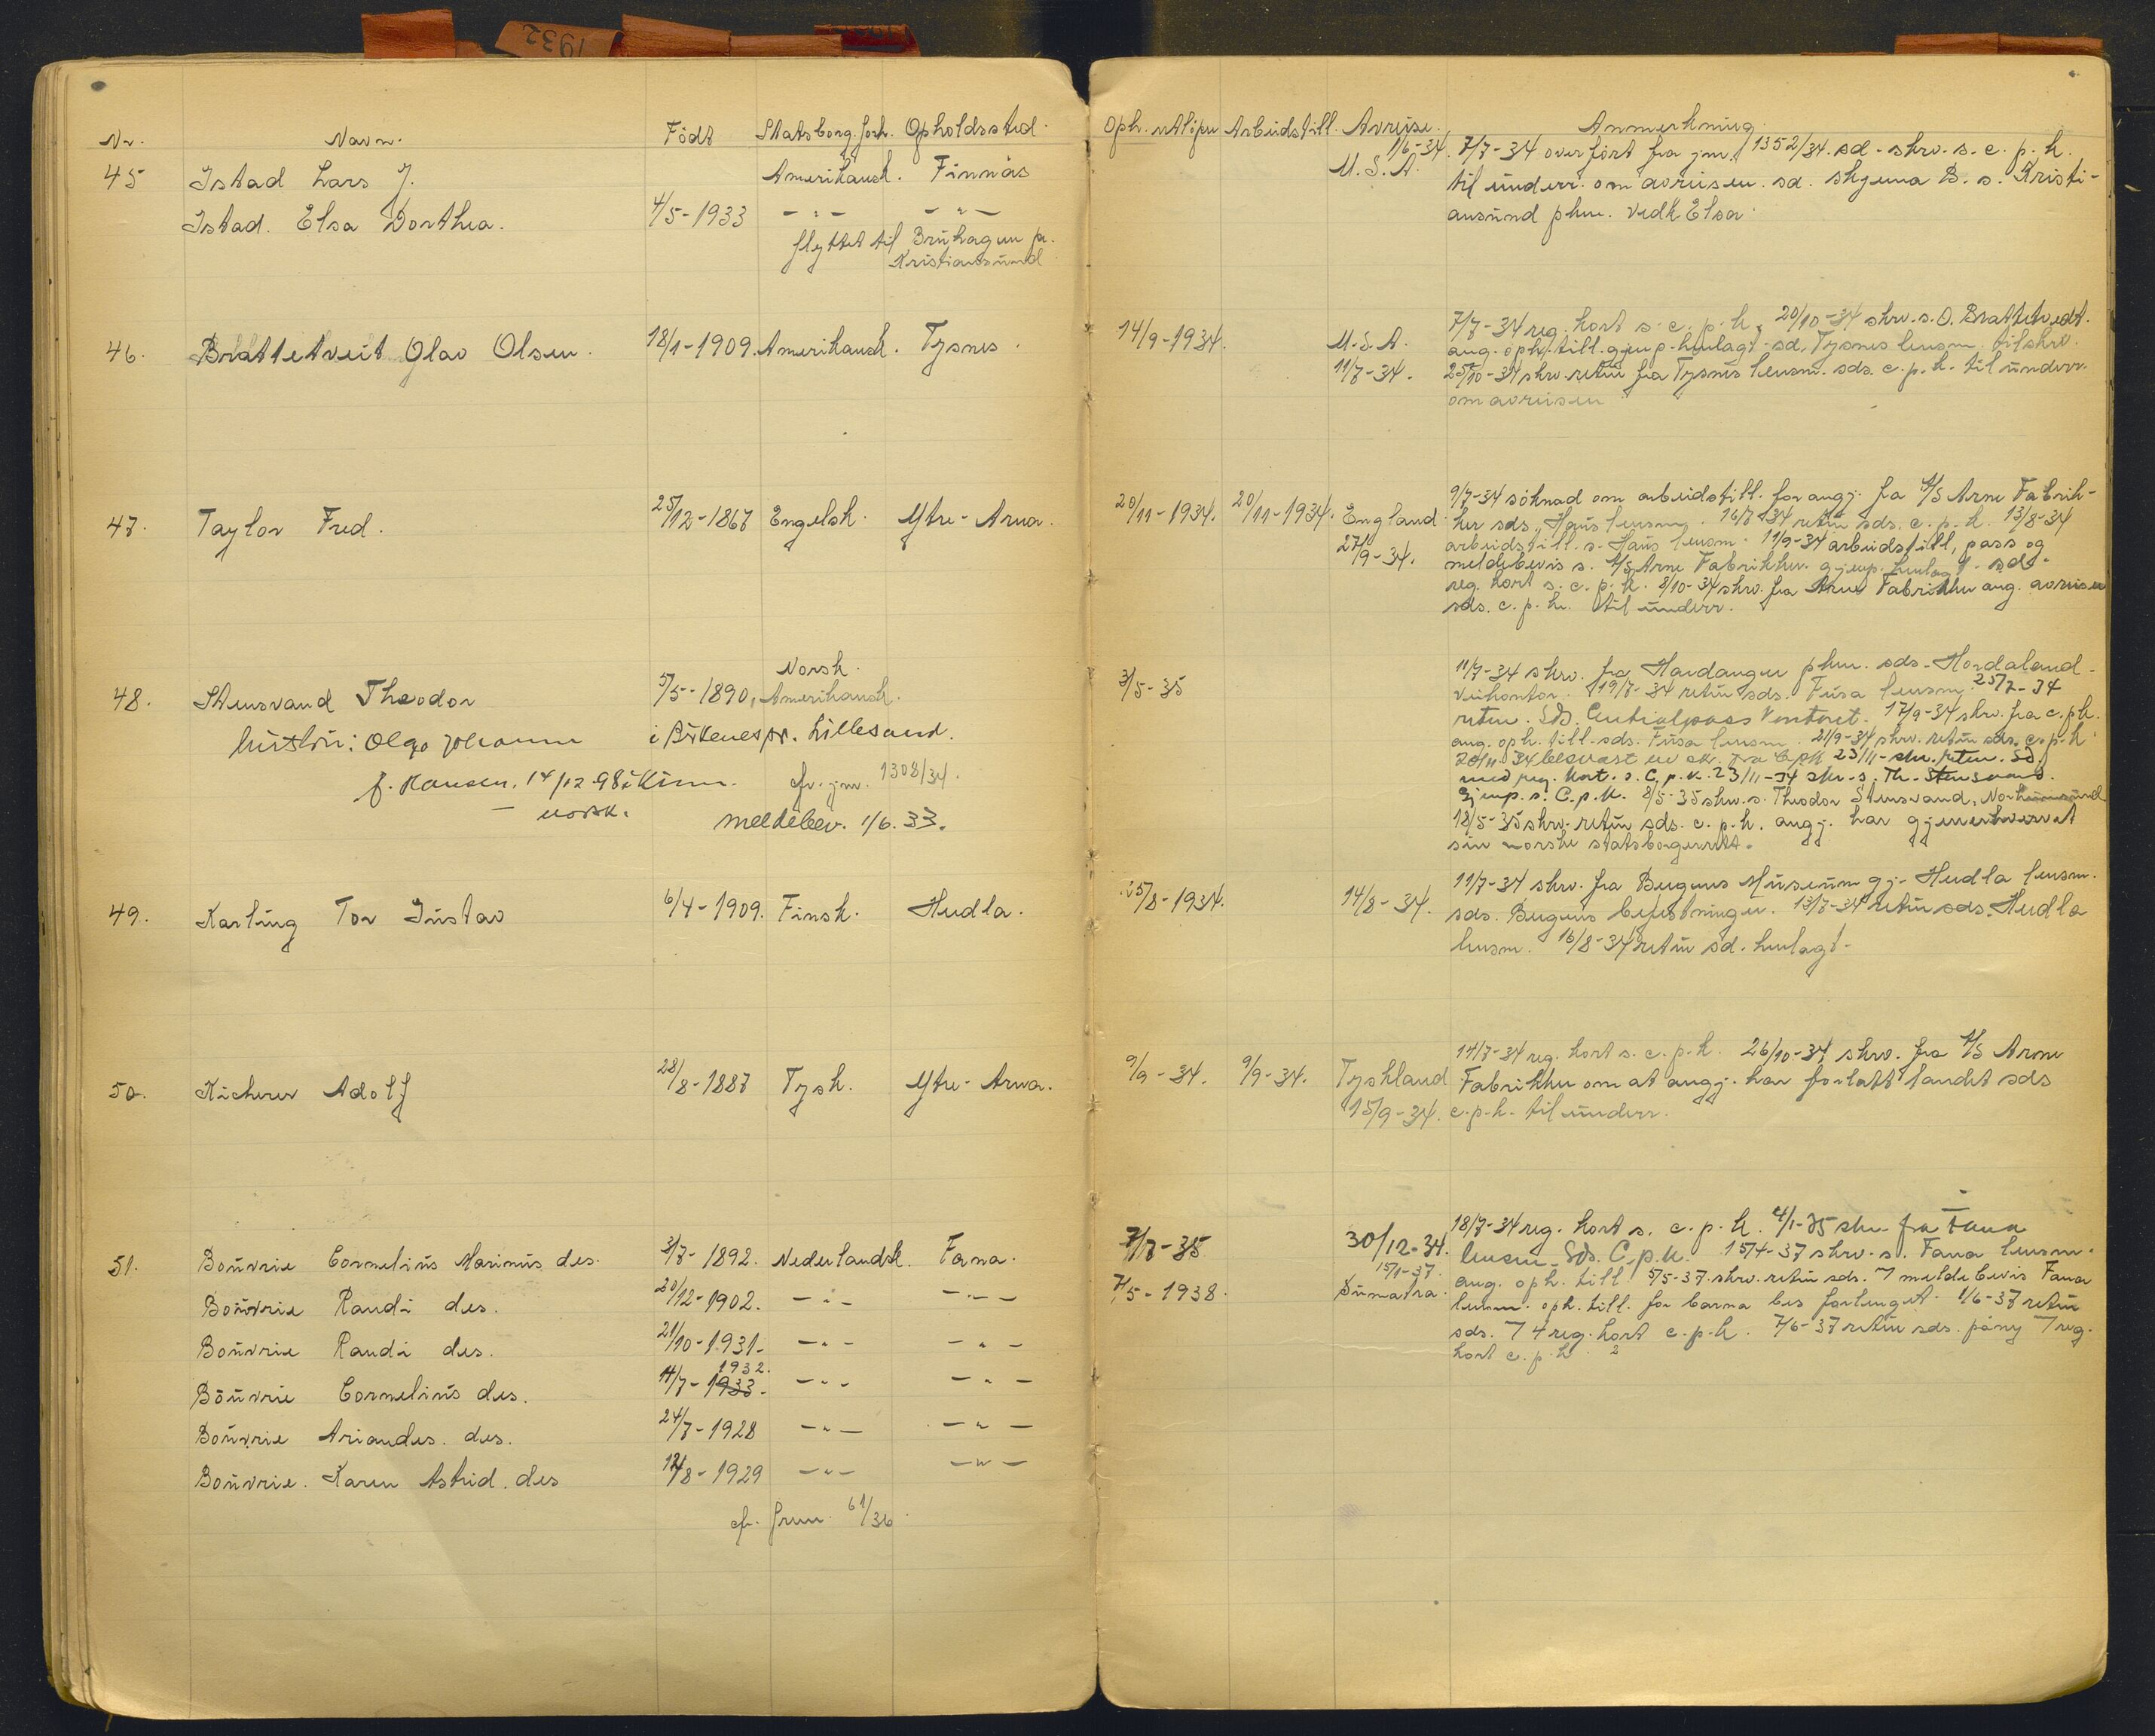 1932
Nr. Navn. Født Statsborg.forh. Opholdssted.
45 Istad Lars J. Amerikansk. Finnås
Istad. Elsa Dorthea. 4/5-1933 -"- -"-
flyttet til Bruhagen pr.
Kristiansund
46. Brattetveit Olav Olsen. 18/1-1909. Amerikansk. Tysnes.
47. Taylor Fred. 25/12-1867 Engelsk. Ytre-Arna.
Norsk.
48. Stensvand Theodor 5/5-1890, Amerikansk.
hustru: Olga Johanne i Birkenes pr. Lillesand.
f. Hansen. 14/12-98 i Kinn. cfr. jnr. 1308/34.
— norsk. meldebev. 1/6.33.
49. Karling Tor Gustav 6/4-1909. Finsk. Herdla.
50. Kicherer Adolf 28/8-1887 Tysk. Ytre-Arna.
51. Bouvrie Cornelius Marinus des. 3/7-1892. Nederlandsk. Fana.
Bouvrie Randi des. 20/12-1902. -"- -"-
Bouvrie Randi des. 21/10-1931- -"- -"-
1932.
Bouvrie Cornelius des. 11/7-1933- -"- -"-
Bouvrie Ariandes. des. 24/7-1928 -"- -"-
Bouvrie. Karen Astrid. des 12/8-1929 -"- -"-
cfr. 61/36.
Oph. utløper Arbeidstill. Avreise. Anmerkning.
1/6-34. 7/7-34 overført fra jnr. 1352/34. sd. skrv. s. c. p. k.
U.S.A. til underr. om avreisen. sd. skjema B. s. Kristi-
ansund pkm. vedk Elsa.
14/9-1934. 7/7-34 reg. kort s. c. p. k. 20/10-34 skrv. s. O. Brattetvedt.
U.S.A. ang. oph. till. gjenp. henlagt. sd. Tysnes lensm. tilskrv.
11/7-34. 25/10-34 skrv. retur fra Tysnes lensm. sds. c. p. k. til underr.
om avreisen
9/7-34 søknad om arbeidstill. for angj. fra A/S Arne Fabrik-
20/11-1934. 20/11-1934. England ker sds. Haus lensm. 16/7-34 retur sds. c. p. k. 13/8-34
27/9-34. arbeidstill. s. Haus lensm. 11/9-34 arbeidstill, pass og
meldebevis s. A/S Arne Fabrikker. gjenp. henlagt. sds.
reg. kort s. c. p. k. 8/10-34 skrv. fra Arne Fabrikker ang. avreisen
sds. c. p. k. til underr.
3/5-35 11/7-34 skrv. fra Hardanger pkm. sds. Hordaland
Veikontor. 19/7-34 retur sds. Fusa lensm. 25/7-34
retur. Sds. Centralpass Kontoret. 17/9-34 skrv. fra c.p.k.
ang. oph. till. sds. Fusa lensm. 21/9-34 skrv. retur sds. c. p. k.
20/11-34 besvart fra Cpk 23/11- skr. retur. Sd.
med reg. kort. s. C. p. k. 23/11-34 skr. s. Th. Stensvand.
Gjenp. s. C.p.k. 8/5-35 skrv. s. Theodor Stensvand, Norheimsund
18/5-35 skrv. retur sds. c. p. k. angj. har gjenerhvervet
sin norske statsborgerrett.
15/8-1934. 14/8-34. 11/7-34 skrv. fra Bergens Museum gj. Herdla lensm.
sds. Bergens befestninger. 13/7-34 retur sds. Herdla
lensm. 16/8-34 retur sd. henlagt-
9/9-34. 9/9-34. Tyskland 14/7-34 reg. kort s. c. p. k. 26/10-34 skrv. fra A/S Arne
Fabrikker om at angj. har forlatt landet sds
15/9-34. c. p. k. til underr.
7/7-35 30/12-34. 18/7-34 reg. kort s. c. p. k. 4/1-35 skr. fra Fana
lensm. Sds. C.p.k. 15/4-37 skrv. s. Fana lensm.
15/1-37. ang. oph. till. 5/5-37. skrv. retur sds. 7 meldebevis Fana
7/5-1938. Sumatra. lensm. oph. till. for barna bes forlenget. 1/6-37 retur
sds. 7 4 reg. kort c. p. k. 7/6-37 retur sds. påny 7 reg.
kort c. p. k. 2